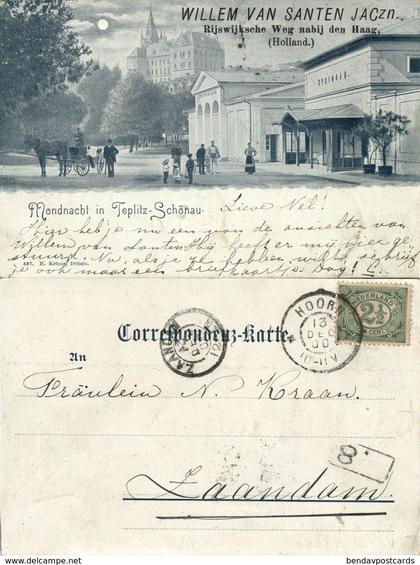 WILLEM VAN SANTEN JACzn.,
Rijswijksche Weg nabij den Haag,
(Holland.)
STEINBAD.
Mondnacht in Teplitz-Schönau.
Lieve Nel!
Hier heb je nu een van de ansichten van
Willem van Santen. Hij heeft er mij vier ge-
stuurd. Nu, als je ze hebben wilt schrijf
je ook maar een briefkaartje. Dag!
537. H. Krüner, Döbeln.
Correspondenz-Karte
An
Fräulein N. Kraan.
Zaandam.
HOORN
13
DEC
00
10-11V
ZAANDAM
NEDERLAND
2½
CENT
8
www.delcampe.net
bendavpostcards